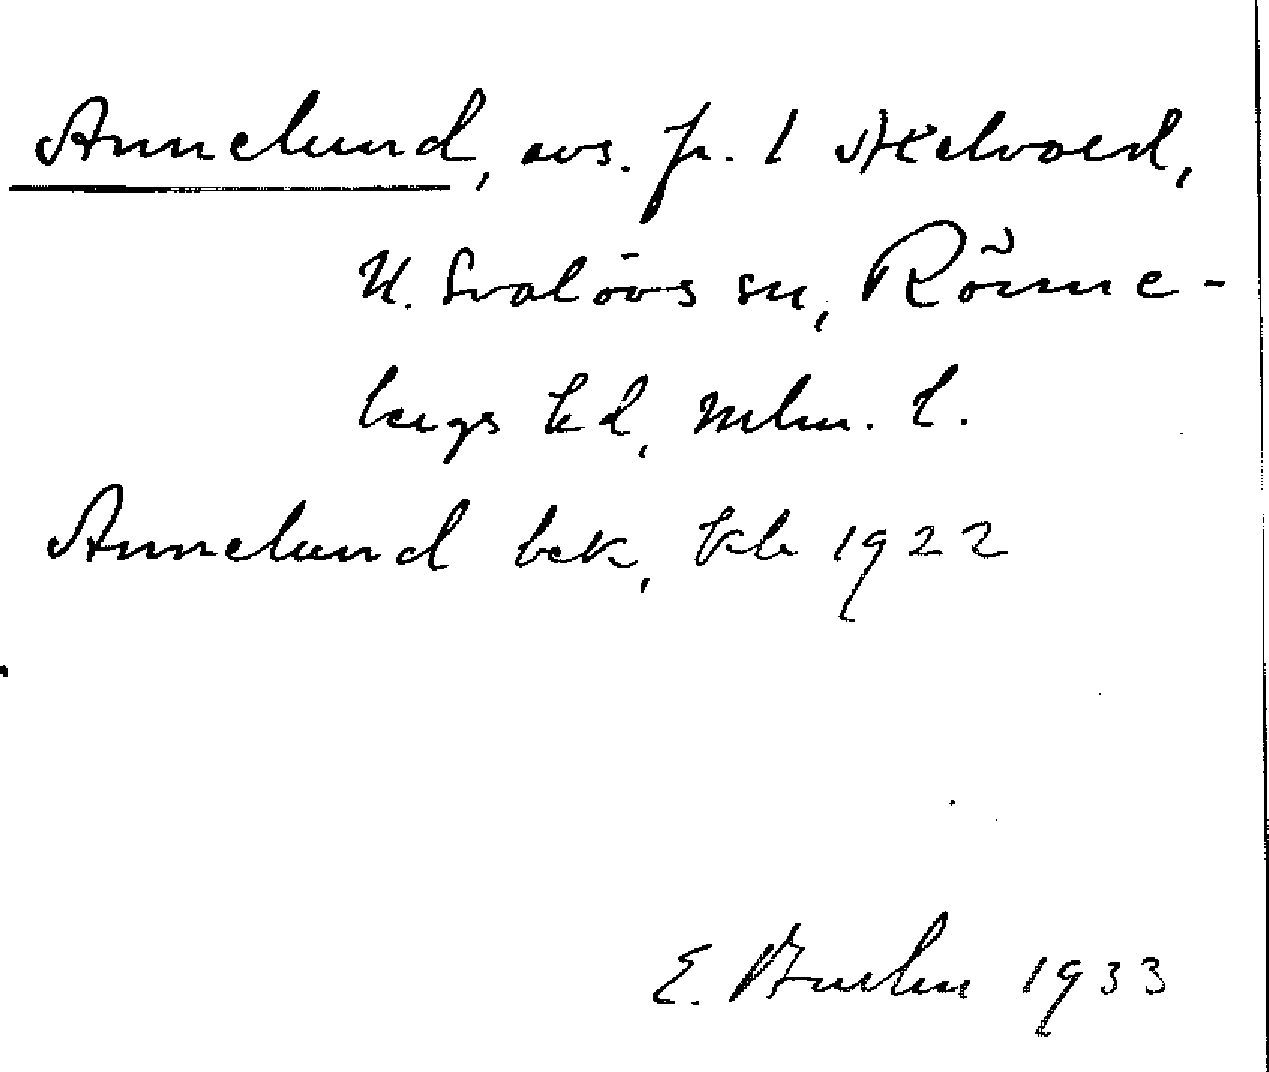 Annelund, avs. fr. 1 Axelvold,
N. Svalövs sn, Rönne-
bergs hd, Mlm. l.
Annelund bek, kb 1922
E. 1933